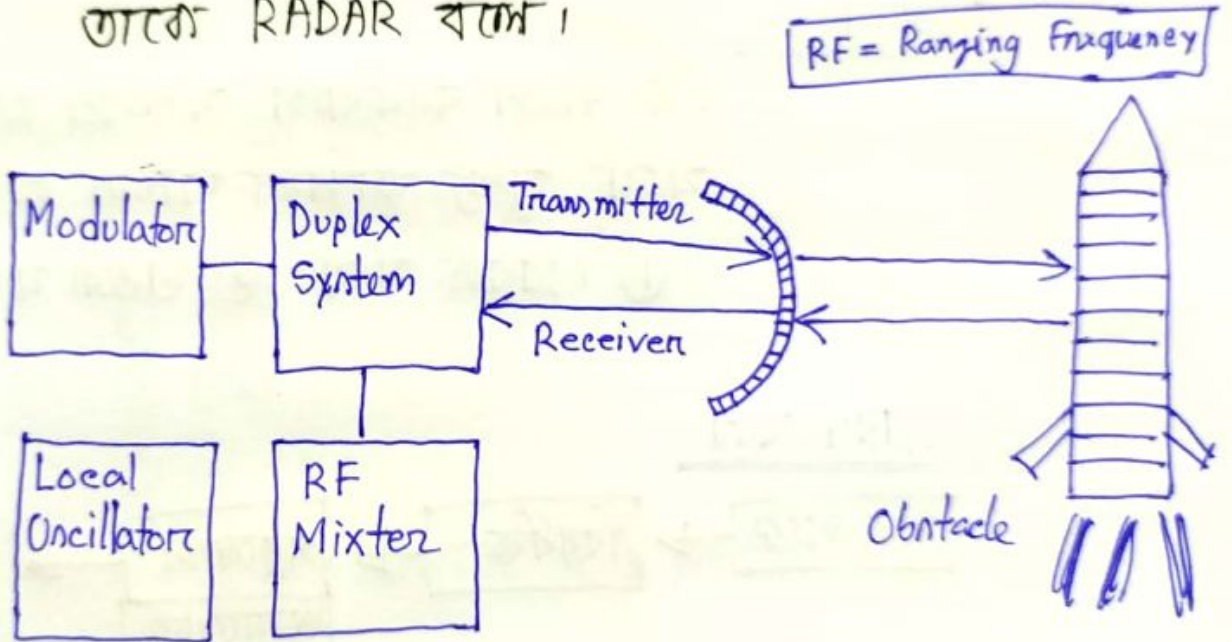 তাকে RADAR বলে।
RF = Ranging Frequency
Modulator
Duplex
System
Transmitter
Receiver
Local
Oscillator
RF
Mixter
Obstacle